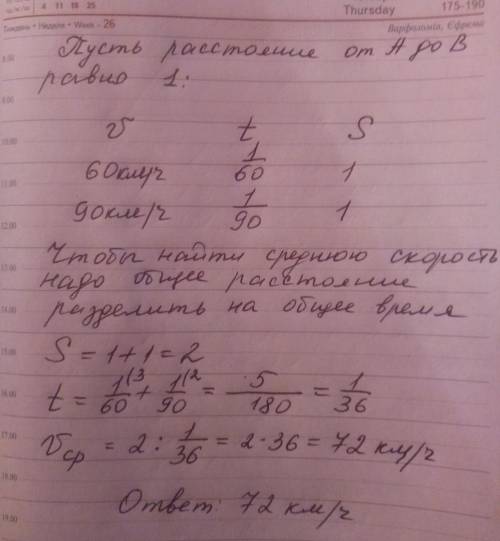 4 11 18 25
Thursday 175-190
Тиждень • Неделя • Week - 26
Варфоломія, Єфрема
8.00
Пусть расстояние от А до В
равно 1:
9.00
10.00
v t S
60км/ч 1/60 1
11.00
90км/ч 1/90 1
12.00
Чтобы найти среднюю скорость
13.00
надо общее расстояние
разделить на общее время
14.00
15.00
S = 1+1 = 2
16.00
t = 1(3/60 + 1(2/90 = 5/180 = 1/36
17.00
vср = 2 : 1/36 = 2·36 = 72 км/ч
18.00
Ответ: 72 км/ч
19.00